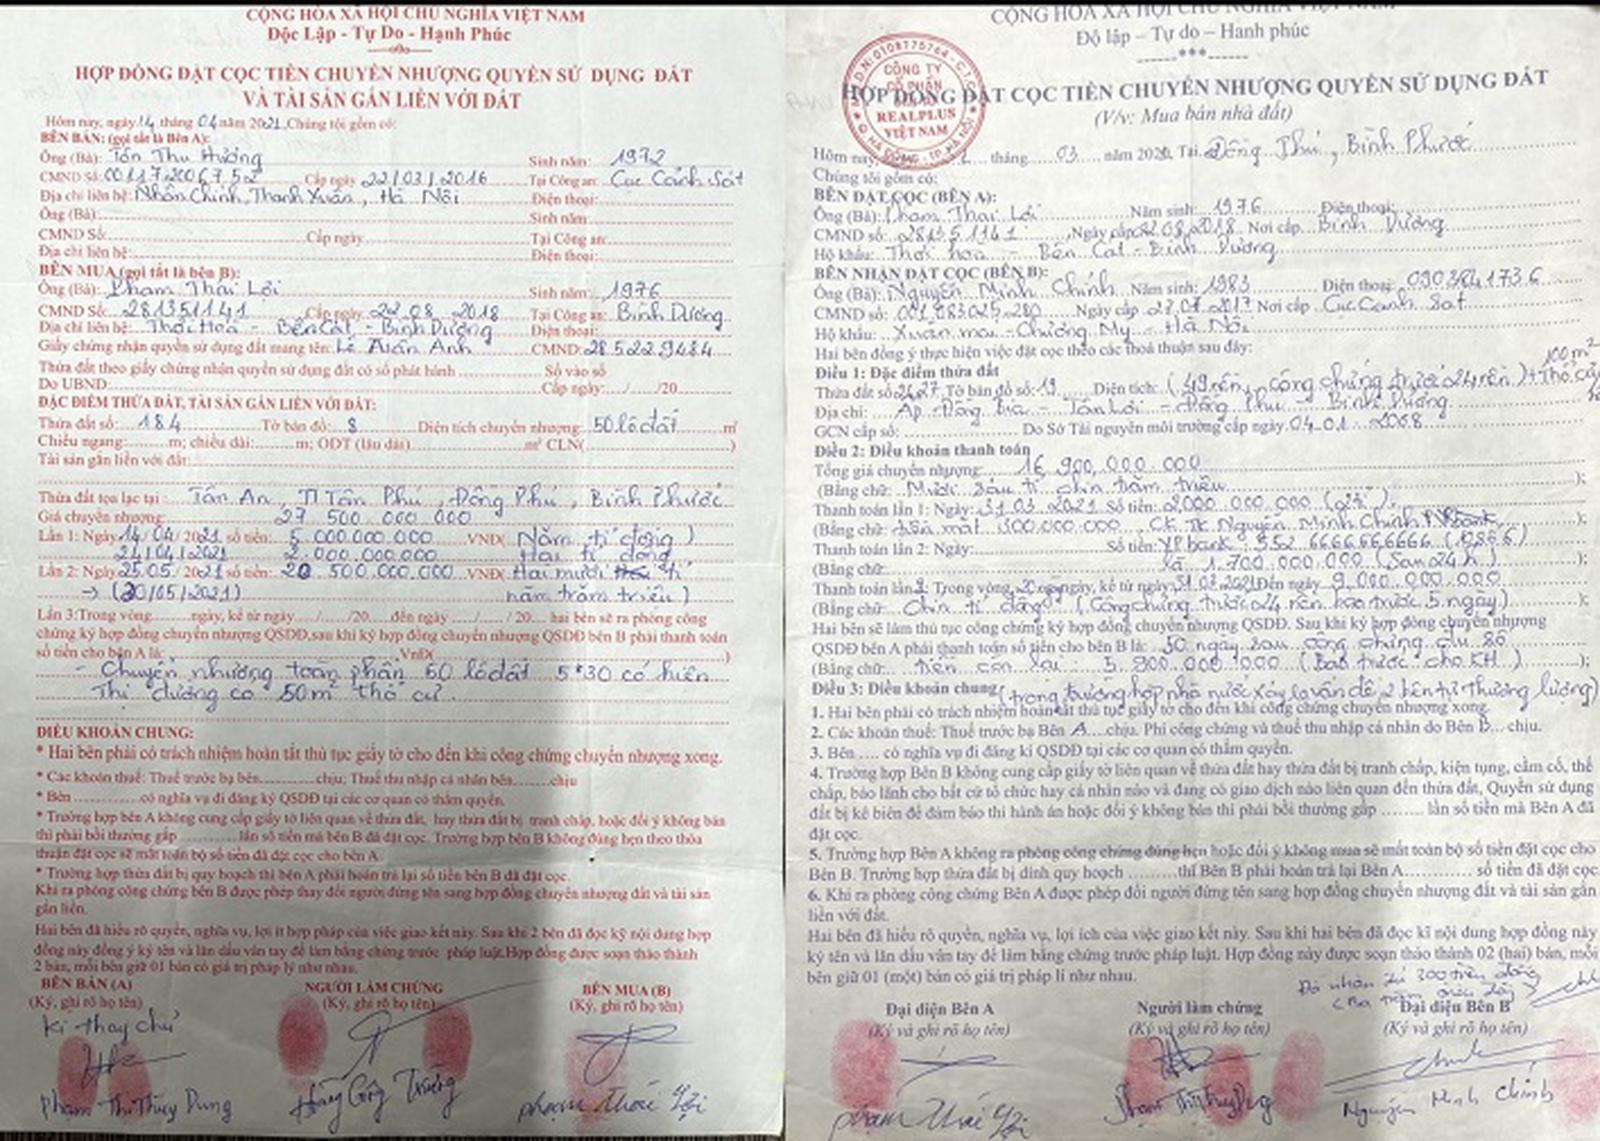 CỘNG HÒA XÃ HỘI CHỦ NGHĨA VIỆT NAM
Độc Lập - Tự Do - Hạnh Phúc
HỢP ĐỒNG ĐẶT CỌC TIỀN CHUYỂN NHƯỢNG QUYỀN SỬ DỤNG ĐẤT
VÀ TÀI SẢN GẮN LIỀN VỚI ĐẤT
Hôm nay, ngày 14 tháng 04 năm 2021, Chúng tôi gồm có:
BÊN BÁN: (gọi tắt là Bên A):
Ông (Bà): Tôn Thu Hương Sinh năm: 1972
CMND Số: 001172006752 Cấp ngày 22/03/2016 Tại Công an: Cục Cảnh Sát
Địa chỉ liên hệ: Nhân Chính, Thanh Xuân, Hà Nội Điện thoại:
Ông (Bà): Sinh năm:
CMND Số: Cấp ngày Tại Công an:
Địa chỉ liên hệ: Điện thoại:
BÊN MUA (gọi tắt là bên B):
Ông (Bà): Phạm Thái Lợi Sinh năm: 1976
CMND Số: 281351141 Cấp ngày 22.08.2018 Tại Công an: Bình Dương
Địa chỉ liên hệ: Thới Hoà - Bến Cát - Bình Dương Điện thoại:
Giấy chứng nhận quyền sử dụng đất mang tên: Lê Tuấn Anh CMND: 285229484
Thửa đất theo giấy chứng nhận quyền sử dụng đất có số phát hành Số vào sổ
Do UBND: Cấp ngày: / /20
ĐẶC ĐIỂM THỬA ĐẤT, TÀI SẢN GẮN LIỀN VỚI ĐẤT:
Thửa đất số: 184 Tờ bản đồ: 8 Diện tích chuyển nhượng: 50 lô đất m²
Chiều ngang: m; chiều dài: m; ODT (lâu dài) m² CLN( )
Tài sản gắn liền với đất:
Thửa đất tọa lạc tại: Tân An, TT Tân Phú, Đồng Phú, Bình Phước
Giá chuyển nhượng: 27 500 000 000
Lần 1: Ngày 14/04/2021 số tiền: 5 000 000 000 VNĐ( Năm tỉ đồng )
24/04/2021 2.000.000.000 Hai tỉ đồng
Lần 2: Ngày 25.05/2021 số tiền: 20 500.000.000 VNĐ( Hai mươi tỉ
→ (30/05/2021) năm trăm triệu )
Lần 3: Trong vòng ngày, kể từ ngày / /20 đến ngày / / 20 hai bên sẽ ra phòng công
chứng ký hợp đồng chuyển nhượng QSDĐ, sau khi ký hợp đồng chuyển nhượng QSDĐ bên B phải thanh toán
số tiền cho bên A là: VnĐ( )
- Chuyển nhượng toàn phần 50 lô đất 5*30 có hiện
Thị đường có 50m² thổ cư
ĐIỀU KHOẢN CHUNG:
* Hai bên phải có trách nhiệm hoàn tất thủ tục giấy tờ cho đến khi công chứng chuyển nhượng xong.
* Các khoản thuế: Thuế trước bạ bên chịu; Thuế thu nhập cá nhân bên chịu
* Bên có nghĩa vụ đi đăng ký QSDĐ tại các cơ quan có thẩm quyền.
* Trường hợp bên A không cung cấp giấy tờ liên quan về thửa đất, hay thửa đất bị tranh chấp, hoặc đổi ý không bán
thì phải bồi thường gấp lần số tiền mà bên B đã đặt cọc. Trường hợp bên B không đúng hẹn theo thỏa
thuận đặt cọc sẽ mất toàn bộ số tiền đã đặt cọc cho bên A
* Trường hợp thửa đất bị quy hoạch thì bên A phải hoàn trả lại số tiền bên B đã đặt cọc.
Khi ra phòng công chứng bên B được phép thay đổi người đứng tên sang hợp đồng chuyển nhượng đất và tài sản
gắn liền.
Hai bên đã hiểu rõ quyền, nghĩa vụ, lợi ít hợp pháp của việc giao kết này. Sau khi 2 bên đã đọc kỹ nội dung hợp
đồng này đồng ý ký tên và lăn dấu vân tay để làm bằng chứng trước pháp luật. Hợp đồng được soạn thảo thành
2 bản, mỗi bên giữ 01 bản có giá trị pháp lý như nhau.
BÊN BÁN (A) NGƯỜI LÀM CHỨNG BÊN MUA (B)
(Ký, ghi rõ họ tên) (Ký, ghi rõ họ tên) (Ký, ghi rõ họ tên)
Kí thay chú
Phạm Thị Thùy Dung Hoàng Công Trường Phạm Thái Lợi
CỘNG HÒA XÃ HỘI CHỦ NGHĨA VIỆT NAM
Độ lập – Tự do – Hạnh phúc
CÔNG TY
CỔ PHẦN
REALPLUS
VIỆT NAM
HỢP ĐỒNG ĐẶT CỌC TIỀN CHUYỂN NHƯỢNG QUYỀN SỬ DỤNG ĐẤT
(V/v: Mua bán nhà đất)
Hôm nay, tháng 03 năm 2020, Tại Đồng Phú, Bình Phước
Chúng tôi gồm có:
BÊN ĐẶT CỌC (BÊN A):
Ông (Bà): Phạm Thái Lợi Năm sinh: 1976 Điện thoại:
CMND số: 281351141 Ngày cấp 22.08.2018 Nơi cấp Bình Dương
Hộ khẩu: Thới hoà - Bến Cát - Bình Dương
BÊN NHẬN ĐẶT CỌC (BÊN B):
Ông (Bà): Nguyễn Minh Chính Năm sinh: 1983 Điện thoại: 0903841736
CMND số: 001083025280 Ngày cấp 27.07.2017 Nơi cấp Cục Cảnh sát
Hộ khẩu: Xuân mai - Chương Mỹ - Hà Nội
Hai bên đồng ý thực hiện việc đặt cọc theo các thoả thuận sau đây:
100m²
Điều 1: Đặc điểm thửa đất
Thửa đất số Tờ bản đồ số: 19 Diện tích: (49 nền, công chứng trước 24 nền) + Thổ
Địa chỉ: Ấp - Đồng - Tân Lợi - Đồng Phú - Bình Dương
GCN cấp số: Do Sở Tài nguyên môi trường cấp ngày 04-01-2008
Điều 2: Điều khoản thanh toán
Tổng giá chuyển nhượng: 16 900.000.000
(Bằng chữ: Mười sáu tỉ chín trăm triệu );
Thanh toán lần 1: Ngày 31.03.2021 Số tiền: 2000.000.000
(Bằng chữ: tiền mặt 300.000.000 CK TK Nguyễn Minh Chính VPbank );
Thanh toán lần 2: Ngày: Số tiền: VPbank: 552 6666666666
(Bằng chữ: là 1.700.000.000 (Sau 24h) );
Thanh toán lần: Trong vòng ngày, kể từ ngày 31.03.2021 Đến ngày 9.000.000.000
(Bằng chữ: Chín tỉ đồng (Công chứng trước 24 nền báo trước 5 ngày) );
Hai bên sẽ làm thủ tục công chứng ký hợp đồng chuyển nhượng QSDĐ. Sau khi ký hợp đồng chuyển nhượng
QSDĐ bên A phải thanh toán số tiền cho bên B là: 30 ngày sau công chứng đủ số
(Bằng chữ: tiền còn lại: 5.900.000.000 (Báo trước cho KH) );
Điều 3: Điều khoản chung (trong trường hợp nhà nước xảy ra vấn đề 2 bên tự thương lượng)
1. Hai bên phải có trách nhiệm hoàn tất thủ tục giấy tờ cho đến khi công chứng chuyển nhượng xong.
2. Các khoản thuế: Thuế trước bạ Bên A chịu. Phí công chứng và thuế thu nhập cá nhân do Bên B chịu.
3. Bên .... có nghĩa vụ đi đăng kí QSDĐ tại các cơ quan có thẩm quyền.
4. Trường hợp Bên B không cung cấp giấy tờ liên quan về thửa đất hay thửa đất bị tranh chấp, kiện tụng, cầm cố, thế
chấp, bảo lãnh cho bất cứ tổ chức hay cá nhân nào và đang có giao dịch nào liên quan đến thửa đất, Quyền sử dụng
đất bị kê biên để đảm bảo thi hành án hoặc đổi ý không bán thì phải bồi thường gấp ........ lần số tiền mà Bên A đã
đặt cọc.
5. Trường hợp Bên A không ra phòng công chứng đúng hẹn hoặc đổi ý không mua sẽ mất toàn bộ số tiền đặt cọc cho
Bên B. Trường hợp thửa đất bị dính quy hoạch ......... thì Bên B phải hoàn trả lại Bên A ........... số tiền đã đặt cọc.
6. Khi ra phòng công chứng Bên A được phép đổi người đứng tên sang hợp đồng chuyển nhượng đất và tài sản gắn
liền với đất.
Hai bên đã hiểu rõ quyền, nghĩa vụ, lợi ích của việc giao kết này. Sau khi hai bên đã đọc kĩ nội dung hợp đồng này
ký tên và lăn dấu vân tay để làm bằng chứng trước pháp luật. Hợp đồng này được soạn thảo thành 02 (hai) bản, mỗi
bên giữ 01 (một) bản có giá trị pháp lí như nhau.
Đã nhận đủ 300 triệu đồng
Đại diện Bên A Người làm chứng Đại diện Bên B
(Ký và ghi rõ họ tên) (Ký và ghi rõ họ tên) (Ký và ghi rõ họ tên)
Phạm Thái Lợi Phạm Thị Thùy Dung Nguyễn Minh Chính